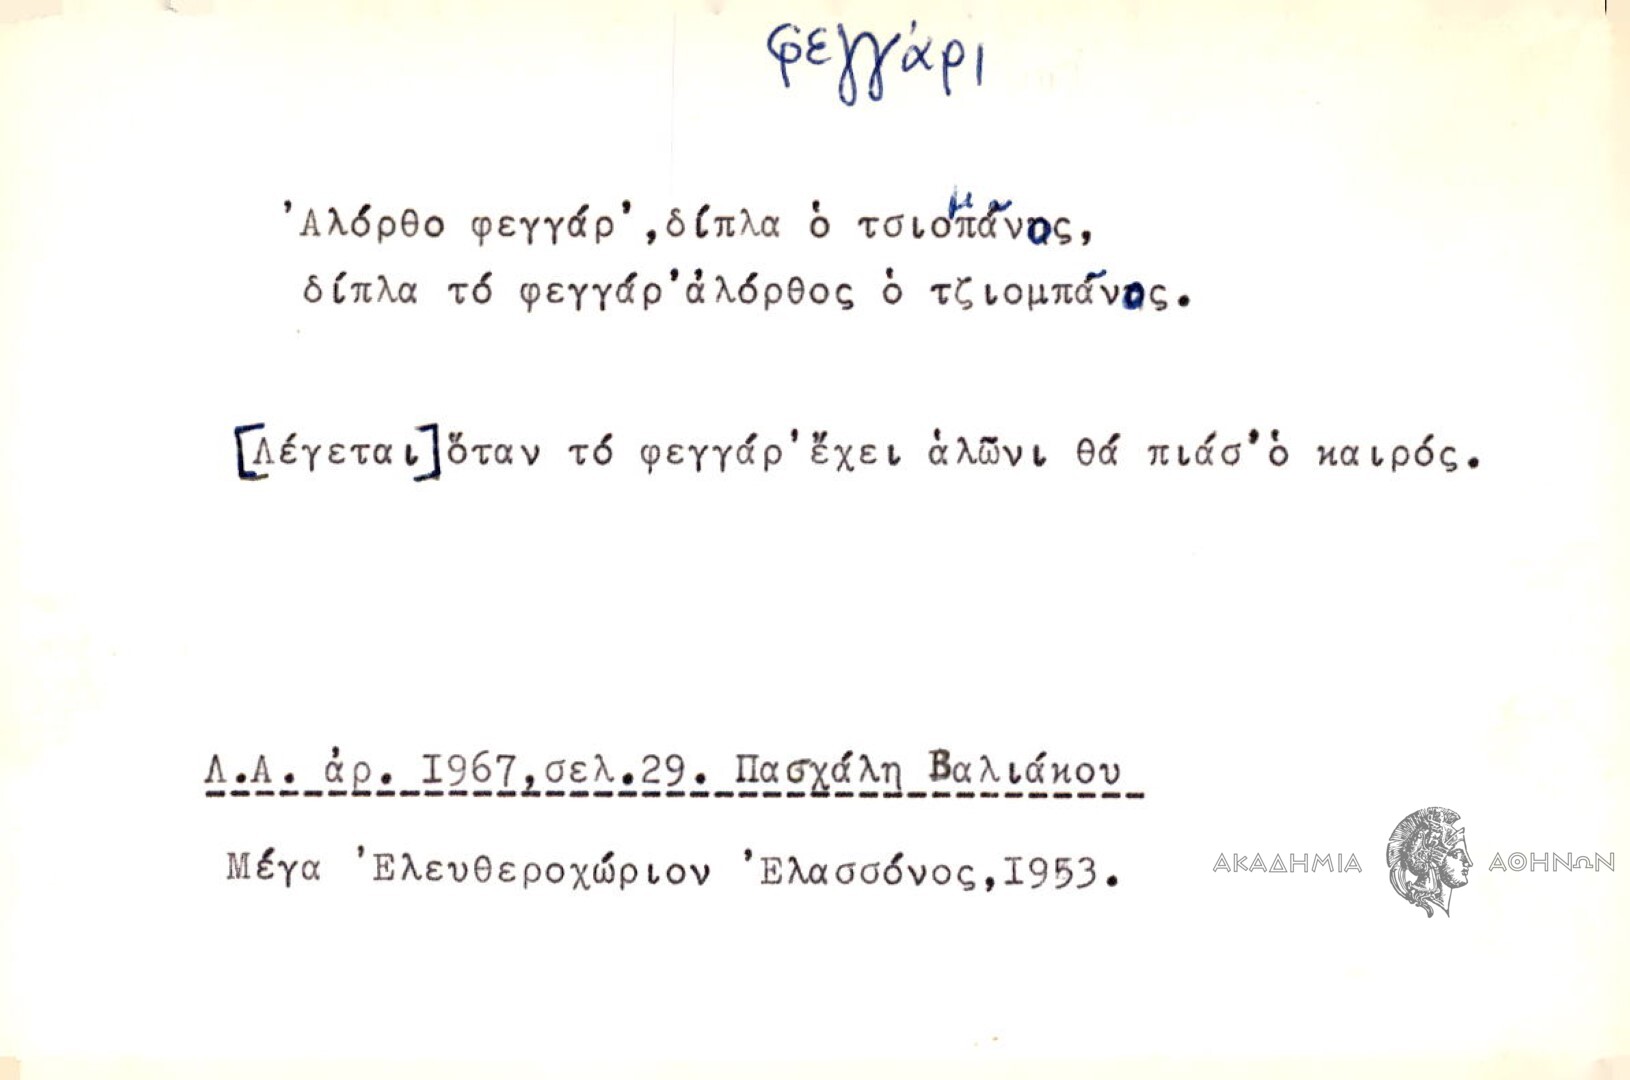 φεγγάρι
'Αλόρθο φεγγάρ', δίπλα ὁ τσιομπᾶνος,
δίπλα τό φεγγάρ' ἀλόρθος ὁ τζιομπᾶνος.
[Λέγεται] ὅταν τό φεγγάρ' ἔχει ἁλῶνι θά πιάσ' ὁ καιρός.
Λ.Α. ἀρ. 1967, σελ. 29. Πασχάλη Βαλιάκου
Μέγα 'Ελευθεροχώριον 'Ελασσόνος, 1953.
ΑΚΑΔΗΜΙΑ ΑΘΗΝΩΝ